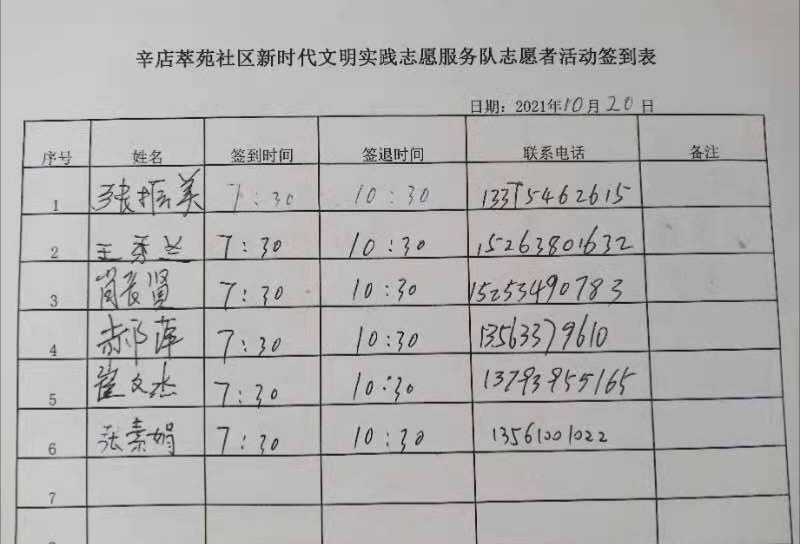 辛店萃苑社区新时代文明实践志愿服务队志愿者活动签到表
日期：2021年10月20日
序号 姓名 签到时间 签退时间 联系电话 备注
1 张振美 7:30 10:30 13375462615
2 王秀兰 7:30 10:30 15263801632
3 肖长贤 7:30 10:30 15253490783
4 郝萍 7:30 10:30 13563379610
5 崔文杰 7:30 10:30 13793955165
6 张素娟 7:30 10:30 13561001022
7